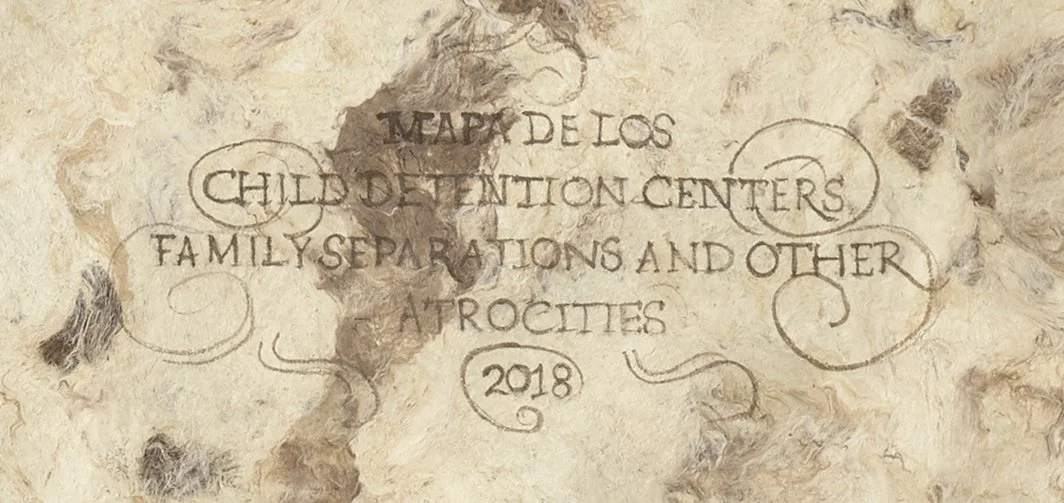 MAPA DE LOS
CHILD DETENTION CENTERS
FAMILY SEPARATIONS AND OTHER
ATROCITIES
2018